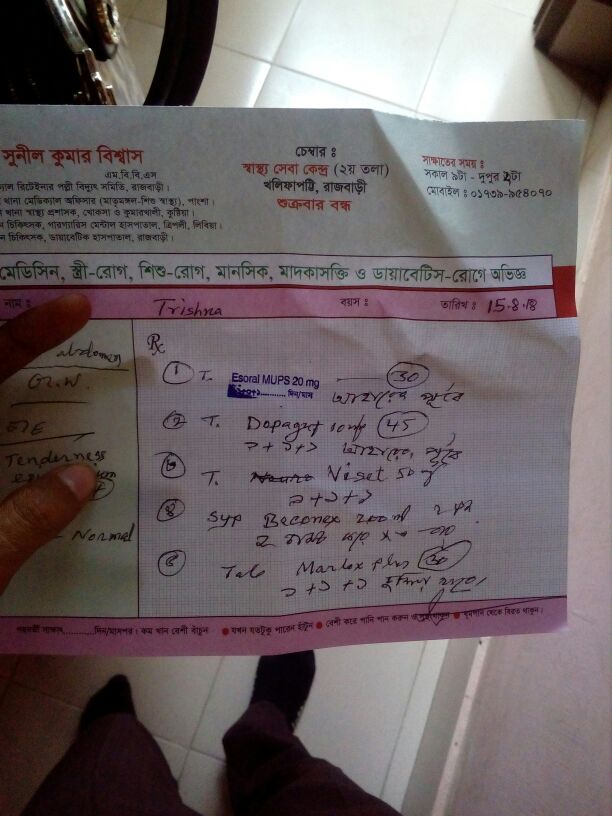 সুনীল কুমার বিশ্বাস
এম.বি.বি.এস
মেডিক্যাল রিটেইনার পল্লী বিদ্যুৎ সমিতি, রাজবাড়ী।
থানা মেডিক্যাল অফিসার (মাতৃমঙ্গল-শিশু স্বাস্থ্য), পাংশা।
থানা স্বাস্থ্য প্রশাসক, খোকসা ও কুমারখালী, কুষ্টিয়া।
চিকিৎসক, গারগ্যারিস মেন্টাল হাসপাতাল, ত্রিপলী, লিবিয়া।
চিকিৎসক, ডায়াবেটিক হাসপাতাল, রাজবাড়ী।
চেম্বার ঃ
স্বাস্থ্য সেবা কেন্দ্র (২য় তলা)
খলিফাপট্টি, রাজবাড়ী
শুক্রবার বন্ধ
সাক্ষাতের সময় ঃ
সকাল ৯টা - দুপুর ২টা
মোবাইল ঃ ০১৭৩৯-৯৫৪০৭০
মেডিসিন, স্ত্রী-রোগ, শিশু-রোগ, মানসিক, মাদকাসক্তি ও ডায়াবেটিস-রোগে অভিজ্ঞ
নাম ঃ Trishna বয়স ঃ তারিখ ঃ 15.8.18
abdomen
Tenderness
- Normal
Rx
① T. Esoral MUPS 20 mg 30
দিন/মাস আহারের পূর্বে
② T. 10 mg 45
১+১+১ আহারের পূর্বে
③ T. Viset 50 mg
১+১+১
④ Syp Beconex 200 ml
⑤ Tab Marlox Plus 30
১+১+১
পরবর্তী সাক্ষাৎ............দিন/মাসপর। কম খান বেশী বাঁচুন ● যখন যতটুকু পারেন হাঁটুন ● বেশী করে পানি পান করুন ● ধূমপান থেকে বিরত থাকুন।